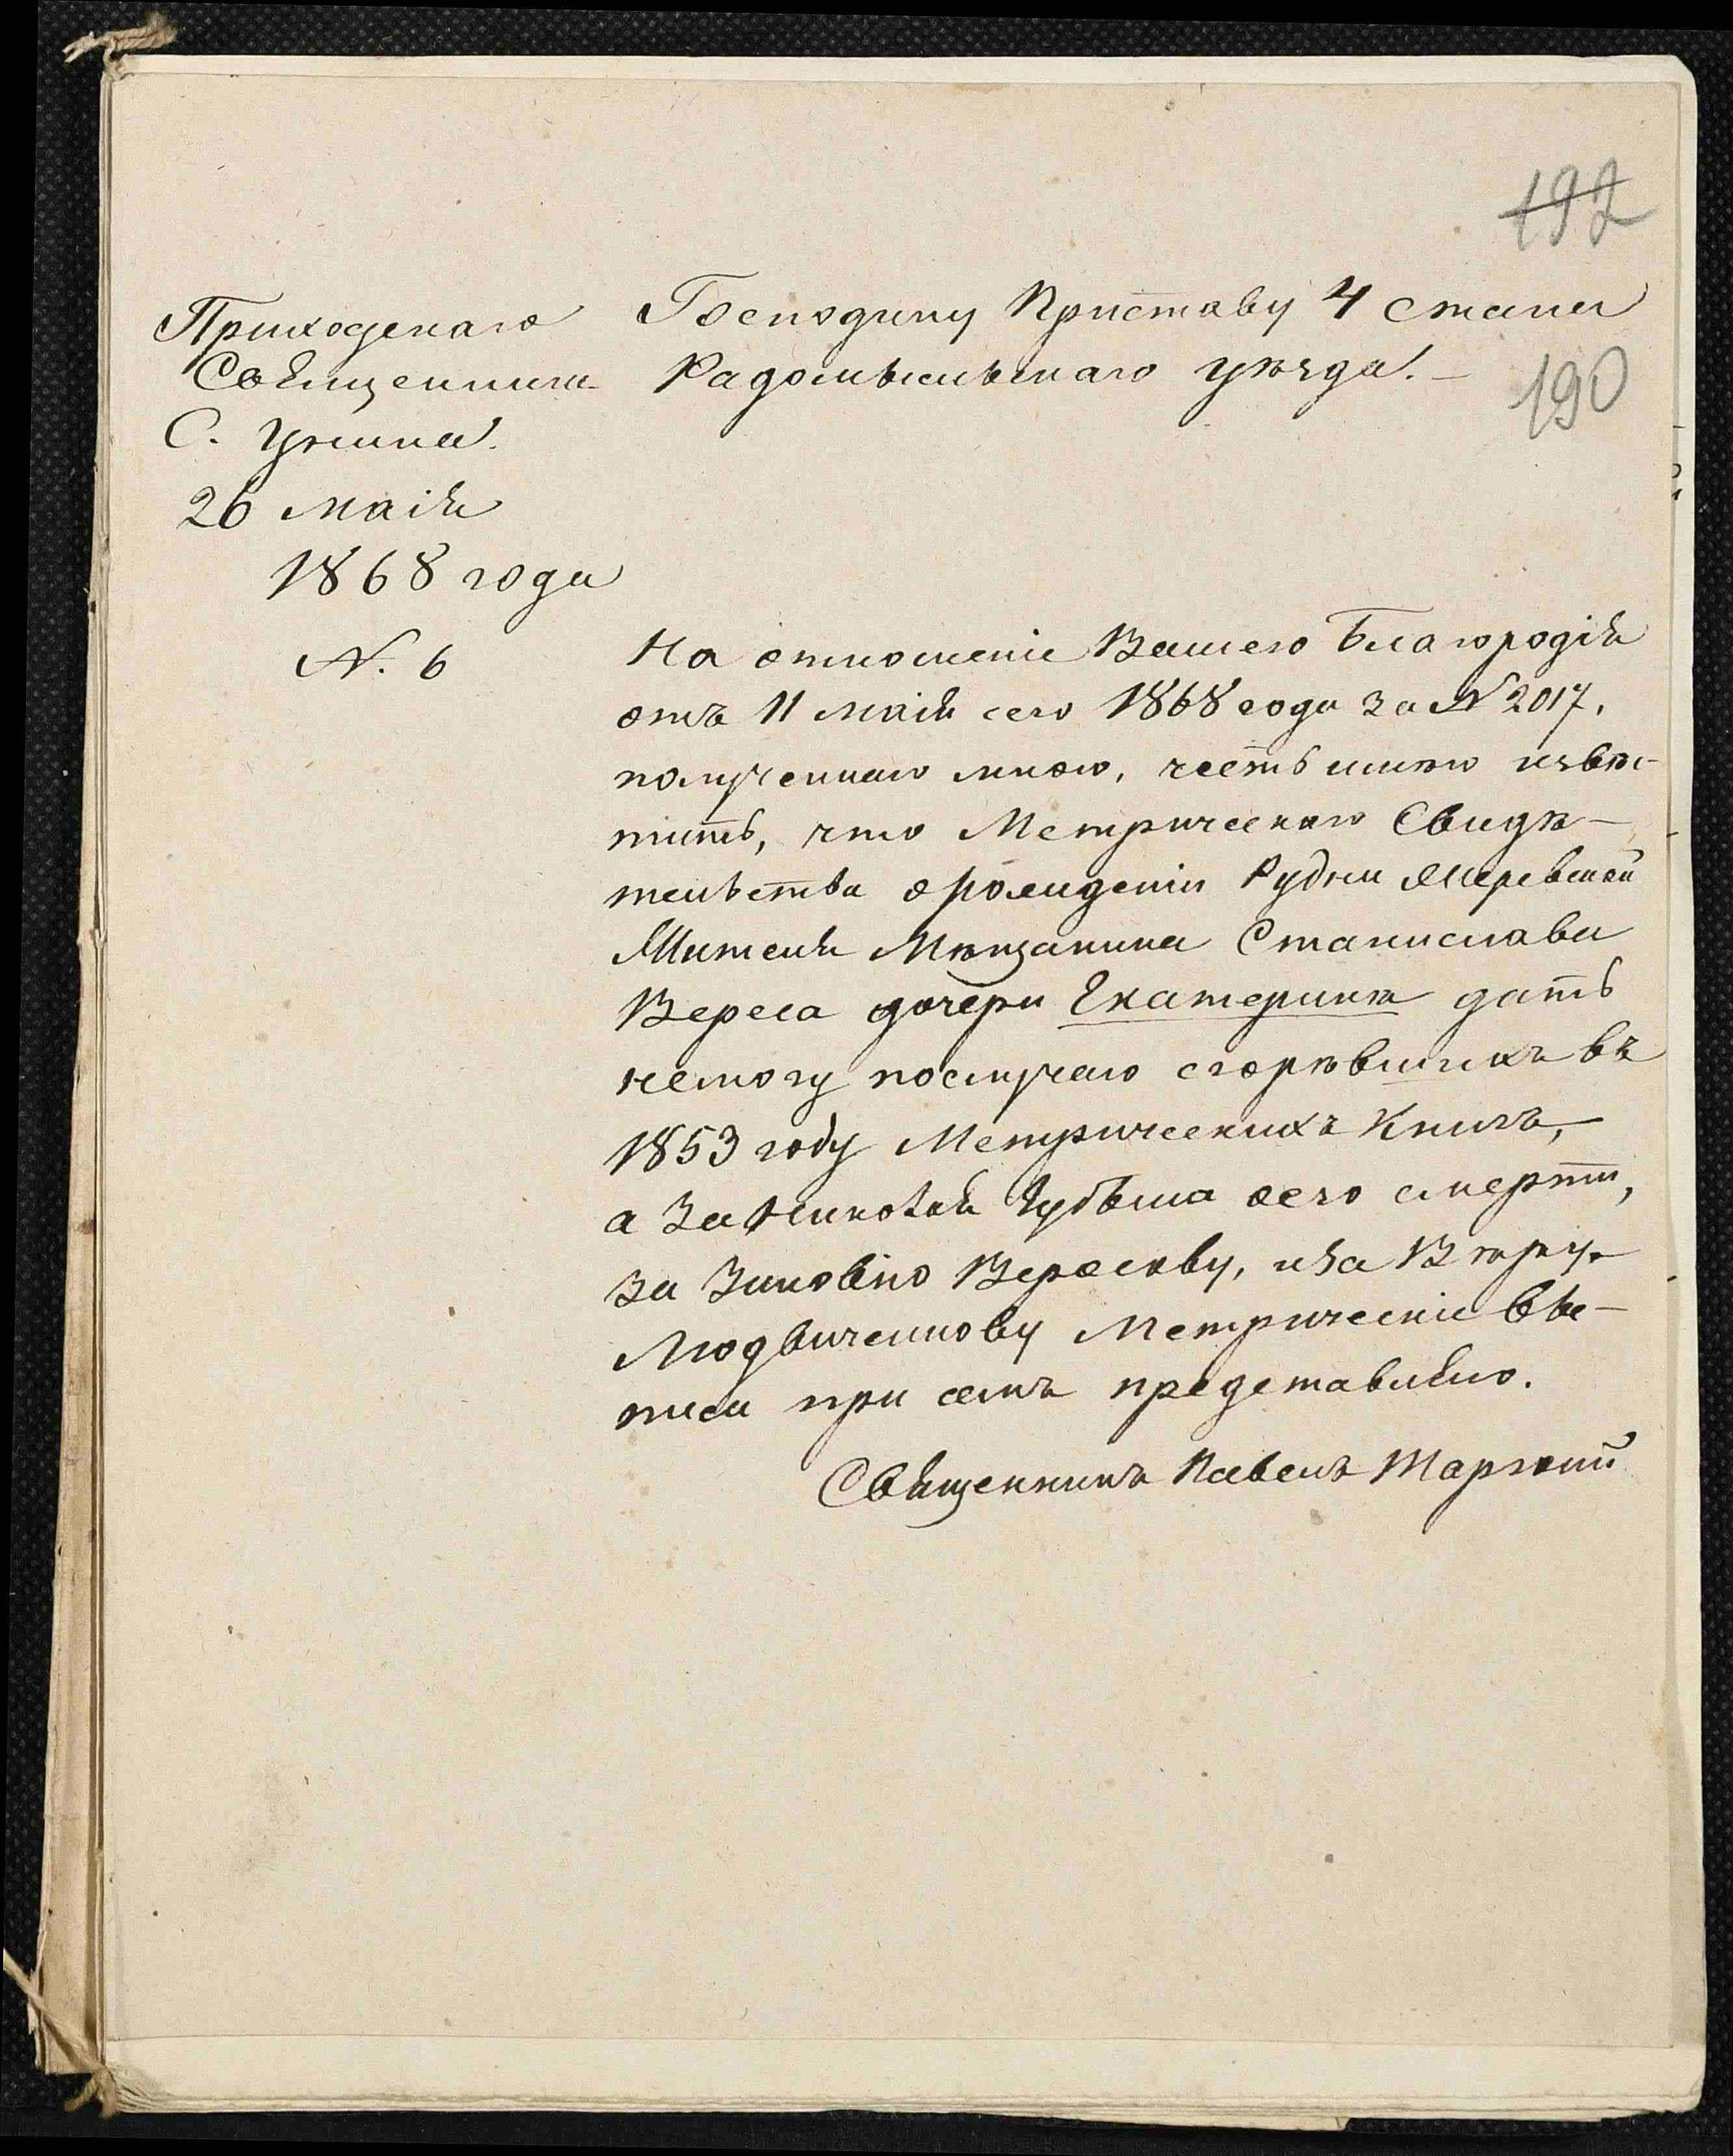 192
190
Приходскаго
Священника
С. Унина
26 Маія
1868 года
N. 6
Господину Приставу 4 стана
Радомысльскаго уѣзда. –
На отношеніе Вашего Благородія
отъ 11 Маія сего 1868 года за N 2017,
полученнаго мною, честь имѣю извѣс-
тить, что Метрическаго Свидѣ-
тельства о рожденіи Рудни
Жителя Мѣщанина Станислава
Вереса дочери Екатеринѣ дать
немогу послучаю сгорѣвшихъ въ
1853 году Метрическихъ Книгъ,
а За Николая оего смерти,
За Зиновію Верескову, иЗа Вѣру
Людвиченкову Метрическіе вы-
писи при семъ представляю.
Священникъ Павелъ